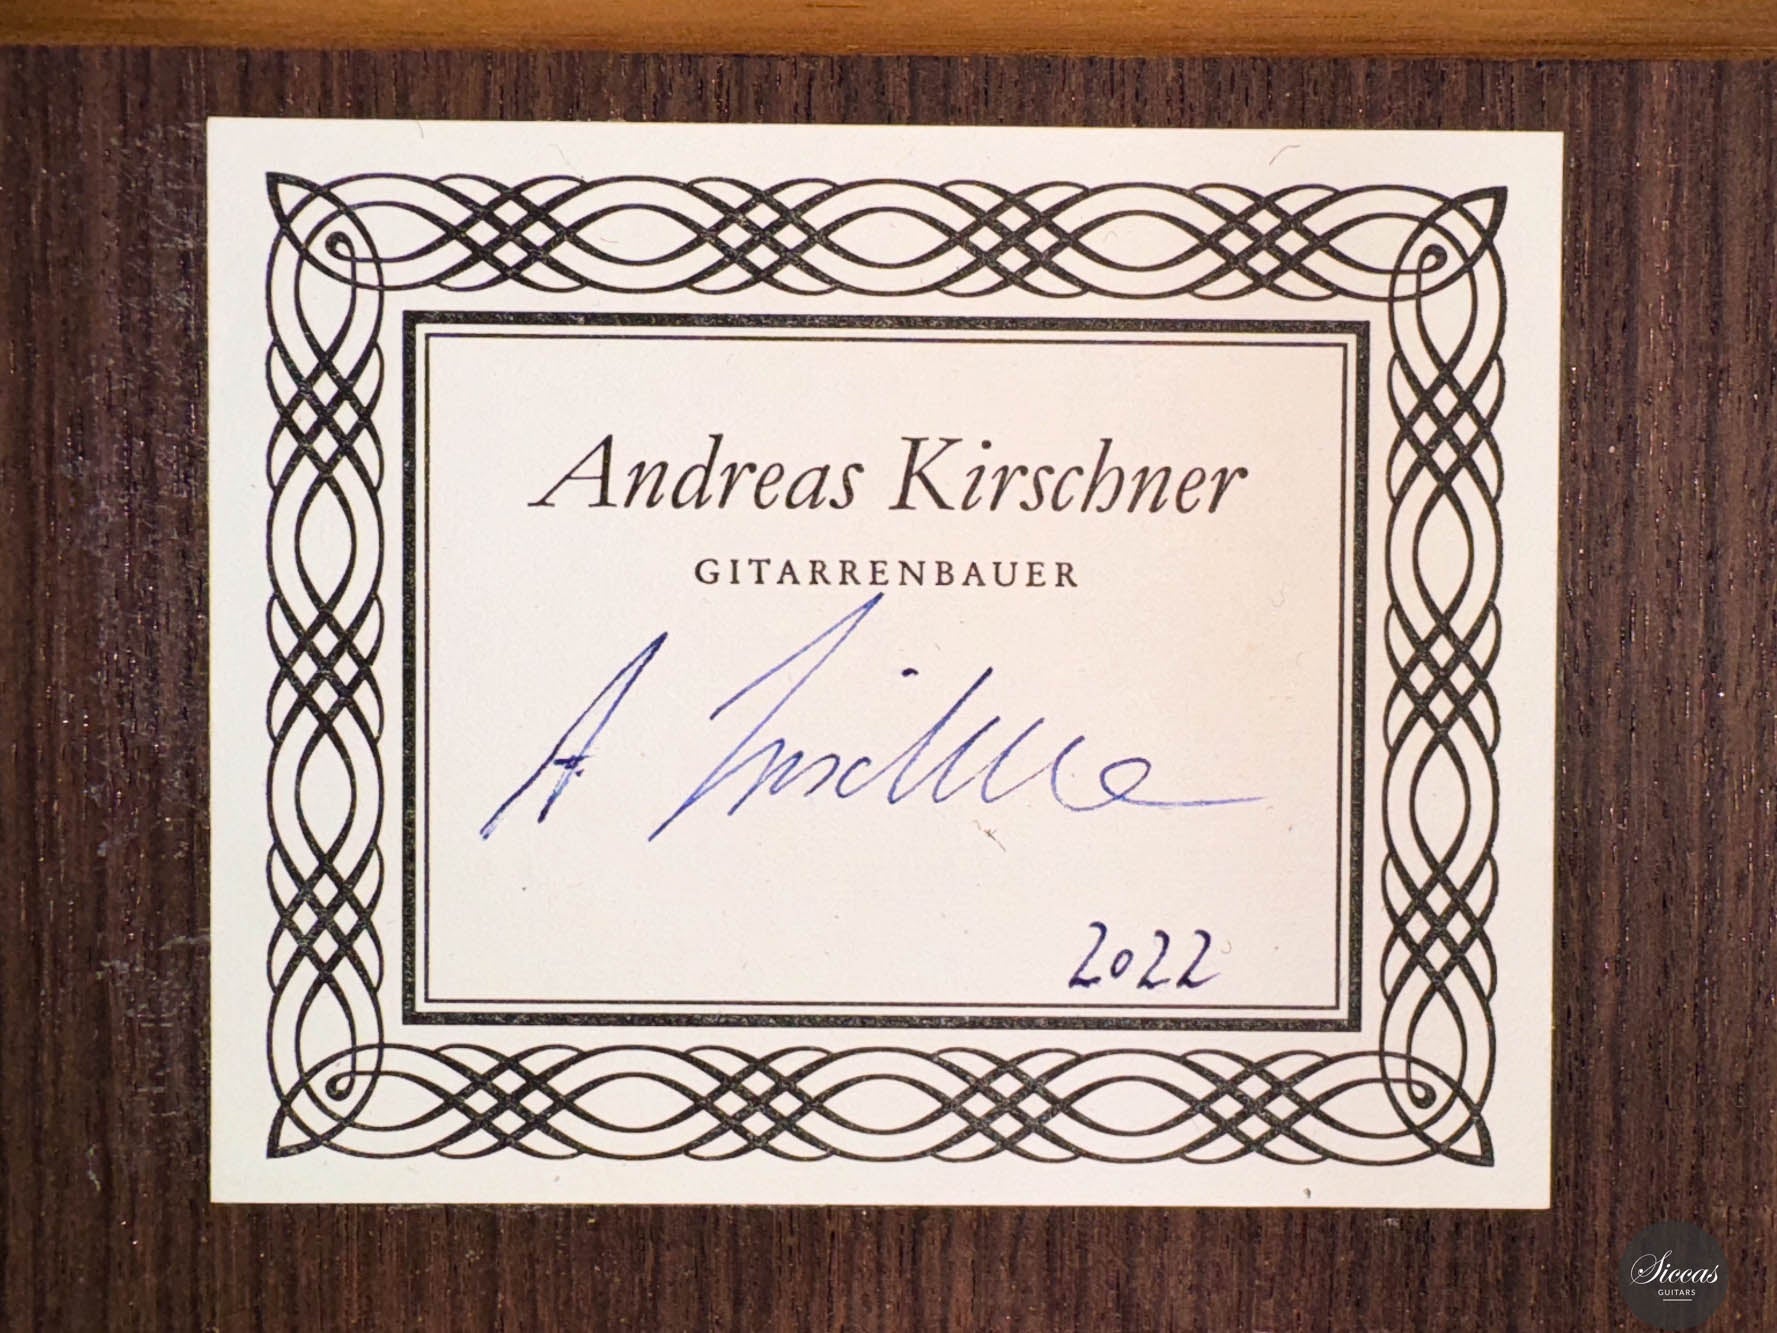 Andreas Kirschner
GITARRENBAUER
A. Kirschner
2022
Siccas
GUITARS